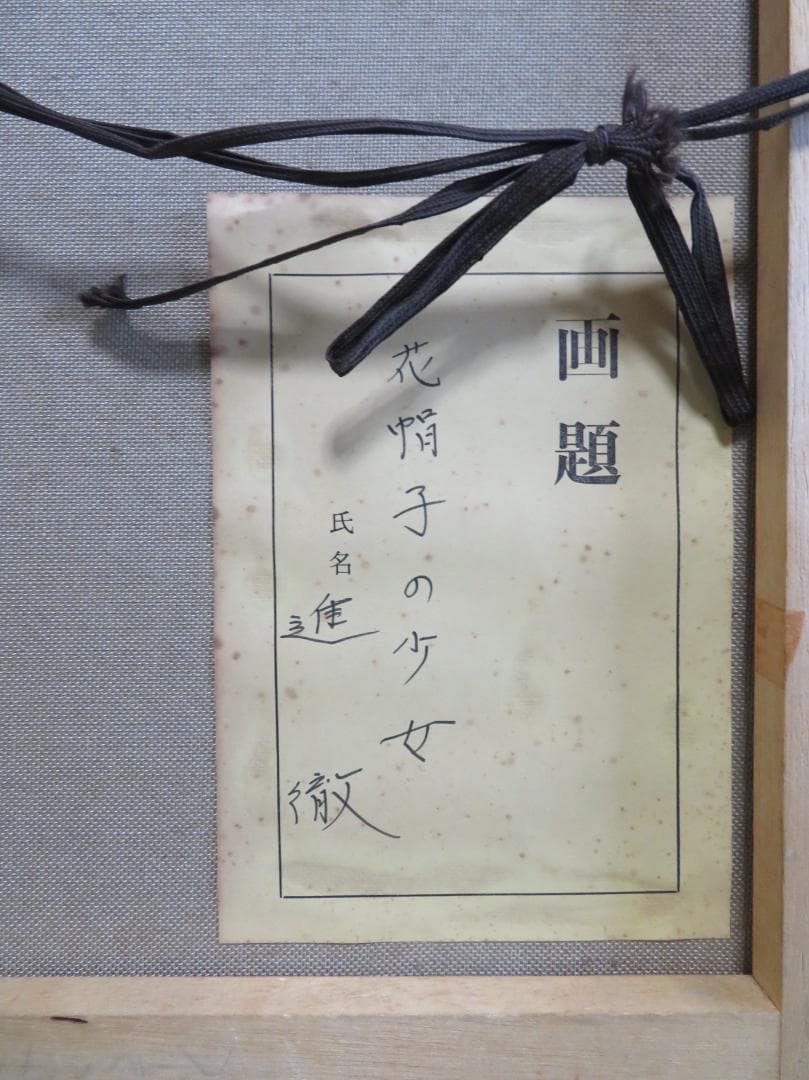 画題
花帽子の少女
氏名
進 徹